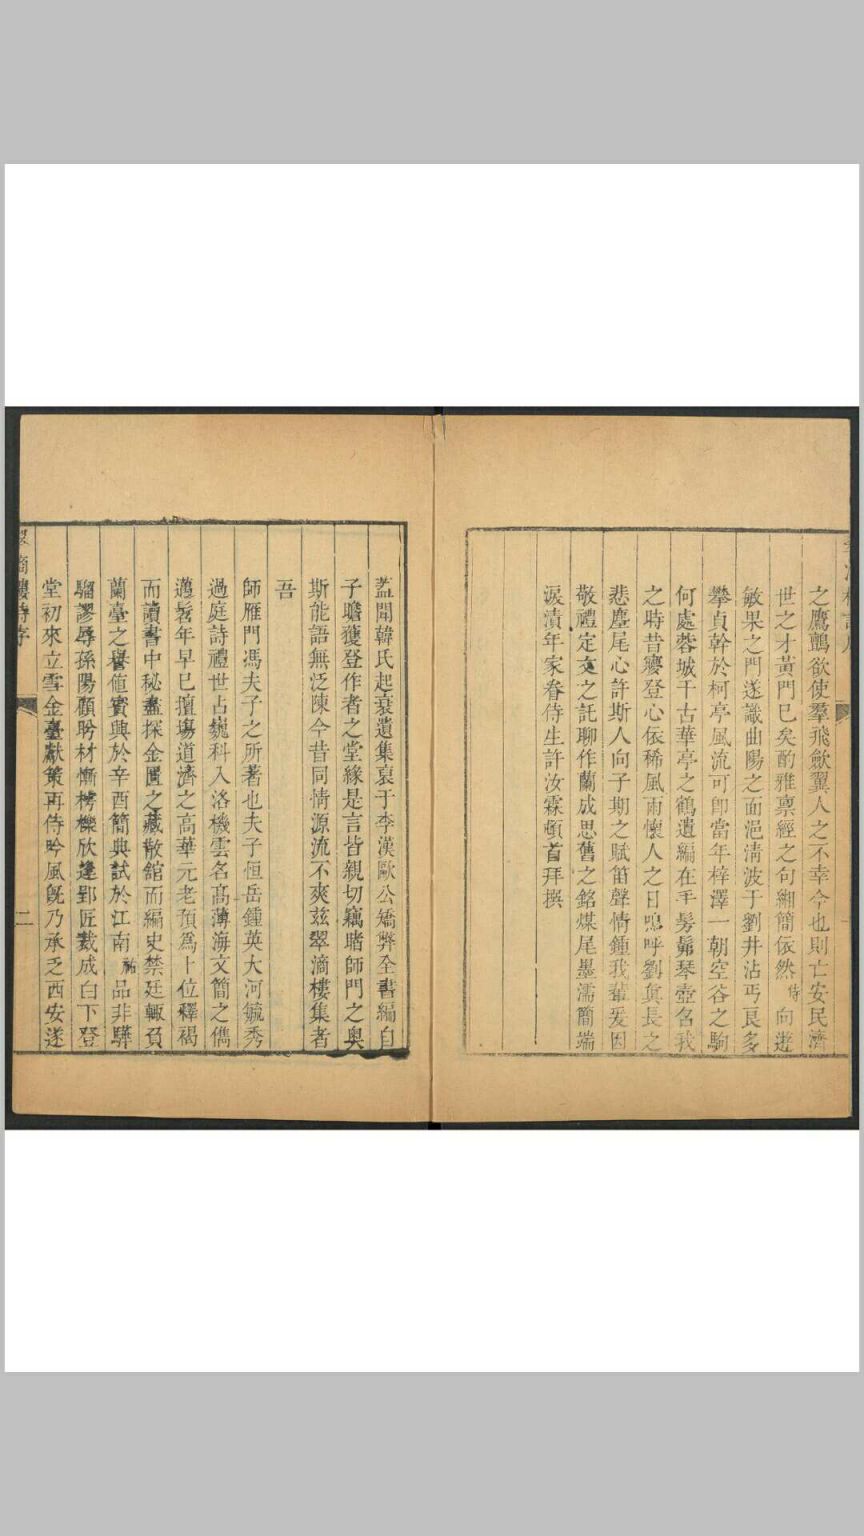 之鷹鸇欲使羣飛歛翼人之不幸今也則亡安民濟
世之才黃門已矣酌雅禀經之句緗簡依然侍向遊
敏果之門遂識曲陽之面浥淸波于劉井沾丐良多
攀貞幹於柯亭風流可卽當年梓澤一朝空谷之駒
何處蓉城千古華亭之鶴遺編在手髣髴琴壺名我
之時昔霽登心依稀風雨懷人之日嗚呼劉眞長之
悲塵尾心許斯人向子期之賦笛聲情鍾我輩爰因
敬禮定文之託聊作蘭成思舊之銘煤尾墨濡簡端
淚漬年家眷侍生許汝霖頓首拜撰
蓋聞韓氏起衰遺集裒于李漢歐公矯弊全書編自
子瞻獲登作者之堂緣是言皆親切竊睹師門之奥
斯能語無泛陳今昔同情源流不爽兹翠滴樓集者
吾
師雁門馮夫子之所著也夫子恒岳鍾英大河毓秀
過庭詩禮世占巍科入洛機雲名高薄海文簡之儁
邁髫年早已擅塲道濟之高華元老預爲卜位釋褐
而讀書中秘盡探金匱之藏散舘而編史禁廷輙負
蘭臺之譽值賓興於辛酉簡典試於江南祐品非驊
騮謬辱孫陽顧盼材慚樗櫟欣逢郢匠裁成白下登
堂初來立雪金臺獻策再侍吟風旣乃承乏西安遂
翠滴樓詩序
二